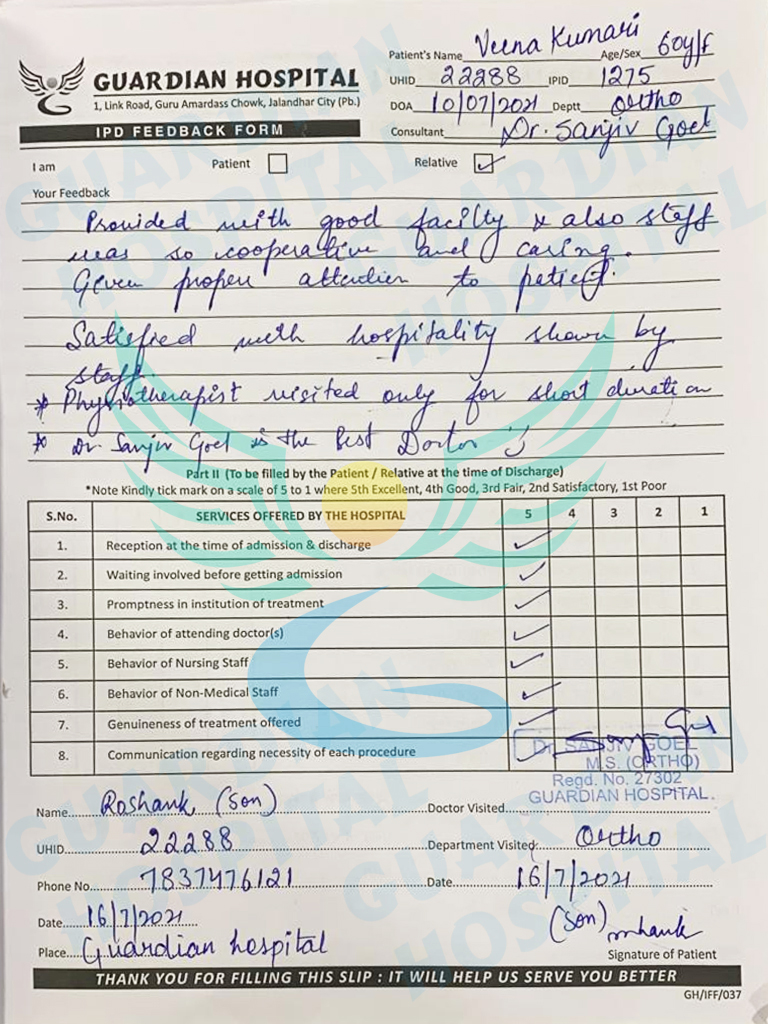 GUARDIAN HOSPITAL
1, Link Road, Guru Amardass Chowk, Jalandhar City (Pb.)
IPD FEEDBACK FORM
Patient's Name Veena Kumari Age/Sex 60y/f
UHID 22288 IPID 1275
DOA 10/07/2021 Deptt Ortho
Consultant Dr. Sanjiv Goel
I am Patient Relative ✓
Your Feedback
Provided with good facilty & also staff
was so cooperative and caring.
Given proper attention to patient.
Satisfied with hospitality shown by
staff.
* Physiotherapist visited only for short duration
* Dr Sanjiv Goel is the Best Doctor
Part II (To be filled by the Patient / Relative at the time of Discharge)
*Note Kindly tick mark on a scale of 5 to 1 where 5th Excellent, 4th Good, 3rd Fair, 2nd Satisfactory, 1st Poor
S.No. SERVICES OFFERED BY THE HOSPITAL 5 4 3 2 1
1. Reception at the time of admission & discharge ✓
2. Waiting involved before getting admission ✓
3. Promptness in institution of treatment ✓
4. Behavior of attending doctor(s) ✓
5. Behavior of Nursing Staff ✓
6. Behavior of Non-Medical Staff ✓
7. Genuineness of treatment offered ✓
8. Communication regarding necessity of each procedure ✓
Dr. SANJIV GOEL
M.S. (ORTHO)
Regd. No. 27302
GUARDIAN HOSPITAL.
Name Roshank (Son) Doctor Visited
UHID 22288 Department Visited: Ortho
Phone No. 7837476121 Date 16/7/2021
Date 16/7/2021 (Son)
Place Guardian hospital Signature of Patient
THANK YOU FOR FILLING THIS SLIP : IT WILL HELP US SERVE YOU BETTER
GH/IFF/037